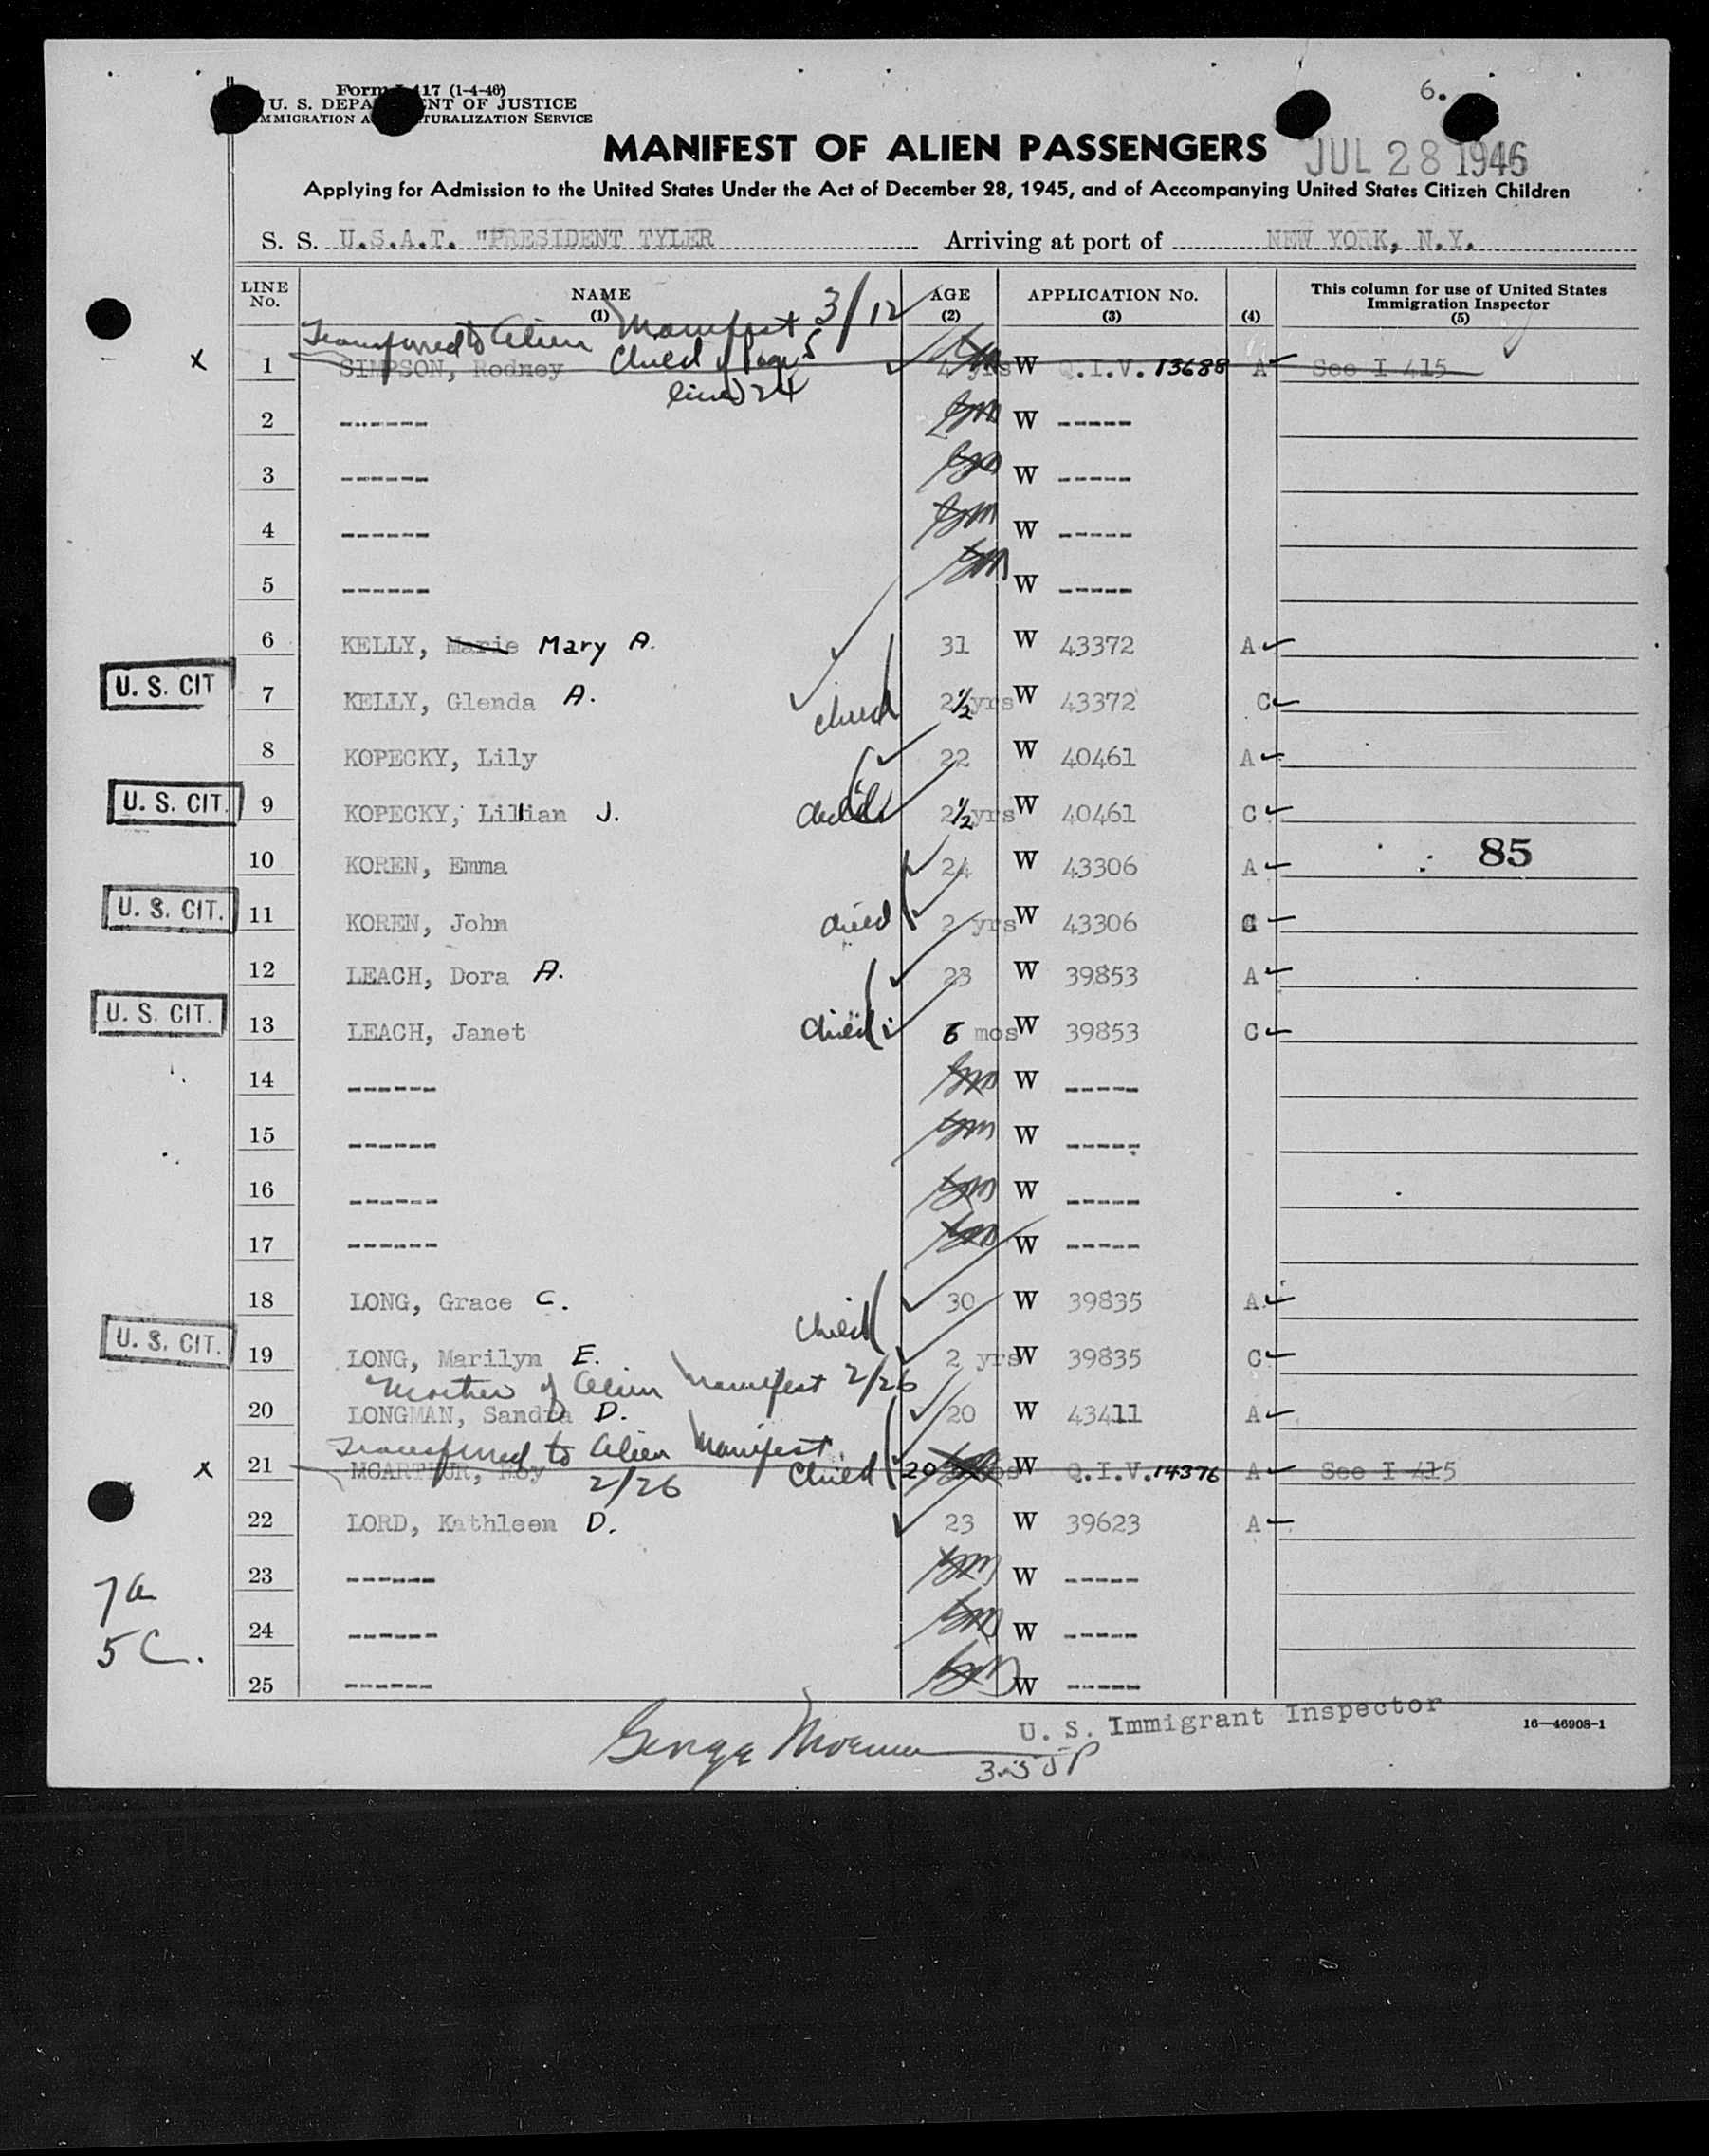 6.
Form I-417 (1-4-46)
U. S. DEPARTMENT OF JUSTICE
IMMIGRATION AND NATURALIZATION SERVICE
MANIFEST OF ALIEN PASSENGERS
JUL 28 1946
Applying for Admission to the United States Under the Act of December 28, 1945, and of Accompanying United States Citizen Children
S. S. U.S.A.T. "PRESIDENT TYLER Arriving at port of NEW YORK, N.Y.
LINE No. NAME (1) AGE (2) APPLICATION No. (3) (4) This column for use of United States Immigration Inspector (5)
Transferred to Alien Manifest 3/12
x 1 SIMPSON, Rodney Child of page 5 4 yrs W Q.I.V. 13688 A See I 415
line 24
2 ------ W -----
3 ------ W -----
4 ------ W -----
5 ------ W -----
6 KELLY, Marie Mary A. 31 W 43372 A
U. S. CIT 7 KELLY, Glenda A. child 2½ yrs W 43372 C
8 KOPECKY, Lily 22 W 40461 A
U. S. CIT. 9 KOPECKY, Lillian J. child 2½ yrs W 40461 C
85
10 KOREN, Emma 24 W 43306 A
U. S. CIT. 11 KOREN, John child 2 yrs W 43306 C
12 LEACH, Dora A. 23 W 39853 A
U. S. CIT. 13 LEACH, Janet child 6 mos W 39853 C
14 ------ W -----
15 ------ W -----
16 ------ W -----
17 ------ W -----
18 LONG, Grace C. 30 W 39835 A
child
U. S. CIT. 19 LONG, Marilyn E. 2 yrs W 39835 C
Mother of Alien Manifest 2/26
20 LONGMAN, Sandra D. 20 W 43411 A
Transferred to Alien Manifest
x 21 MCARTHUR, Roy 2/26 Child 20 mos W Q.I.V. 14376 A See I 415
22 LORD, Kathleen D. 23 W 39623 A
23 ------ W -----
7a
24 ------ W -----
5 C.
25 ------ W -----
George U. S. Immigrant Inspector
16—46908-1